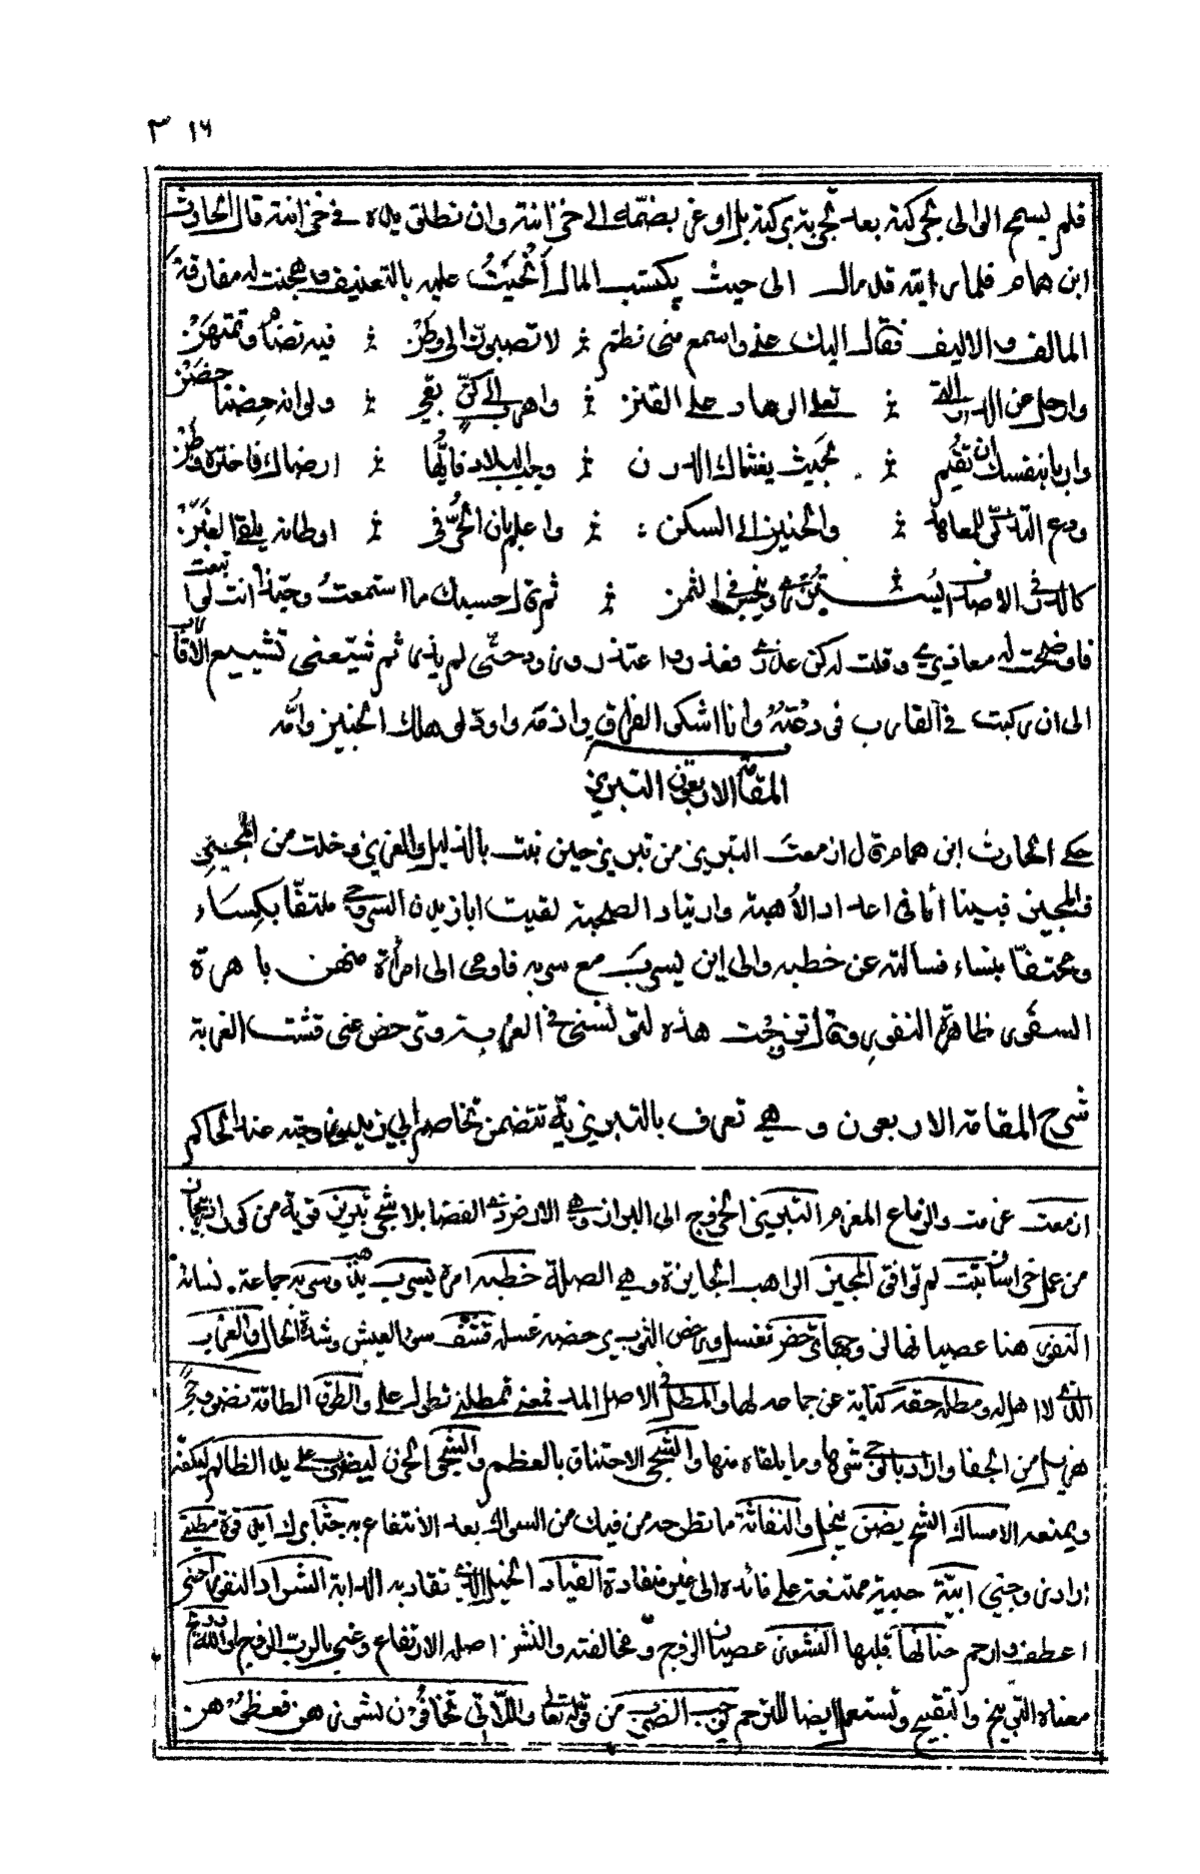 ٣١٦
فلم يسمح الوالى بحركته بعد تجربة بركته بل اوعز بضمه الى حزانته وان تطلق يده فى خزانته قال الحارث
ابن همام فلما رايته قد مال الى حيث يكتسب المال أنحيتُ عليه بالتعنيف وهجنت له مفارقة
المالف والاليف فقال اليك عنى واسمع منى نظم لا تصبونّ الى وطن فيه تضام وتمتهن
وارحل عن الدار التى تعلى الوهاد على القنن واهرب الى كنّ يقى ولو انه حضنا حضن
واربا بنفسك ان تقيم بحيث يغشاك الدرن وجب البلاد فايّها ارضاك فاختره وطن
ودع التذكّر للمعاهد والحنين الى السكن واعلم بان الحرّ فى اوطانه يلقى الغبن
كالدر فى الاصداف يستزرى ويبخس فى الثمن ثم قال حسبك ما استمعت وحبّذا انت لو اتبعت
فاوضحت له معاذيرى وقلت له كن عذيرى فعذر واعتذر وزود حتّى لم يذر ثم شيّعنى تشييع الاقارب
الى ان ركبت فى القارب فودعته وانا اشكى الفراق واذمه واود لو هلك الجنين وامّه
المقامة الاربعون التبريزية
حكى الحارث ابن همام قال ازمعت التبريز من تبريز حين نبت بالذليل والعزيز وخلت من المجير
والمجيز فبينا أنا فى اعداد الأهبة وارتياد الصحبة لقيت ابا زيد ن السروجى ملتفّا بكساء
ومحتفّا بنساء فسالته عن خطبه والى اين يسرب مع سربه فاومى الى امرأة منهن باهرة
السفور ظاهرة النفور وقال تزوجت هذه لتونسنى فى الغربة وترحض عنى قشف العزبة
شرح المقامة الاربعون وهى تعرف بالتبريزية تتضمن تخاصم ابى زيد وزوجته عند الحاكم
ازمعت عزمت والزماع المعزم التبريز الخروج الى البراز وهى الارض الفضا بلا شجر تبريز قرية من كور اذربيجان
من عمل خراسان نبت لم توافق المجيز الواهب الجايزة وهى الصلة خطبه امره يسرب يذهب وسربه جماعة نسائه
النفور هنا عصيانها فى وجهها ترحض تغسل ورحض الثوب يرحضه غسله قشف سوء العيش وشدة الحال والعزب
الذى لا اهل له ومطله حقه كناية عن جماعه لها والمطل فى الاصل المد فمعنى تمطلنى تطول على والطوق الطاقة نضو وجى
هزيل من الجفا والادبار شجى شرها وما يلقاه منها والشجى الاختناق بالعظم والشجى الحزن ليضرب على يد الظالم ليكفه
ويمنعه الامساك الشح يضن يبخل والنفاثة ما تطرحه من فيك من السواك بعد الانتفاع به
ازادى وجنبى ابيّة حبية ممتنعة على قائده الى غير منقادة القياد الحبل الذى تقاد به الدابة الشراد النفور احنى
اعطف وارحم جنانها قلبها النشوز عصيان الزوج ومخالفته والنشز اصله الارتفاع وعنى بالرب الزوج
معناه التوبيخ والتقبيح وتستعمل ايضا للترحم يوجب الضرب من قوله تعالى واللاتى تخافون نشوزهن فعظوهن